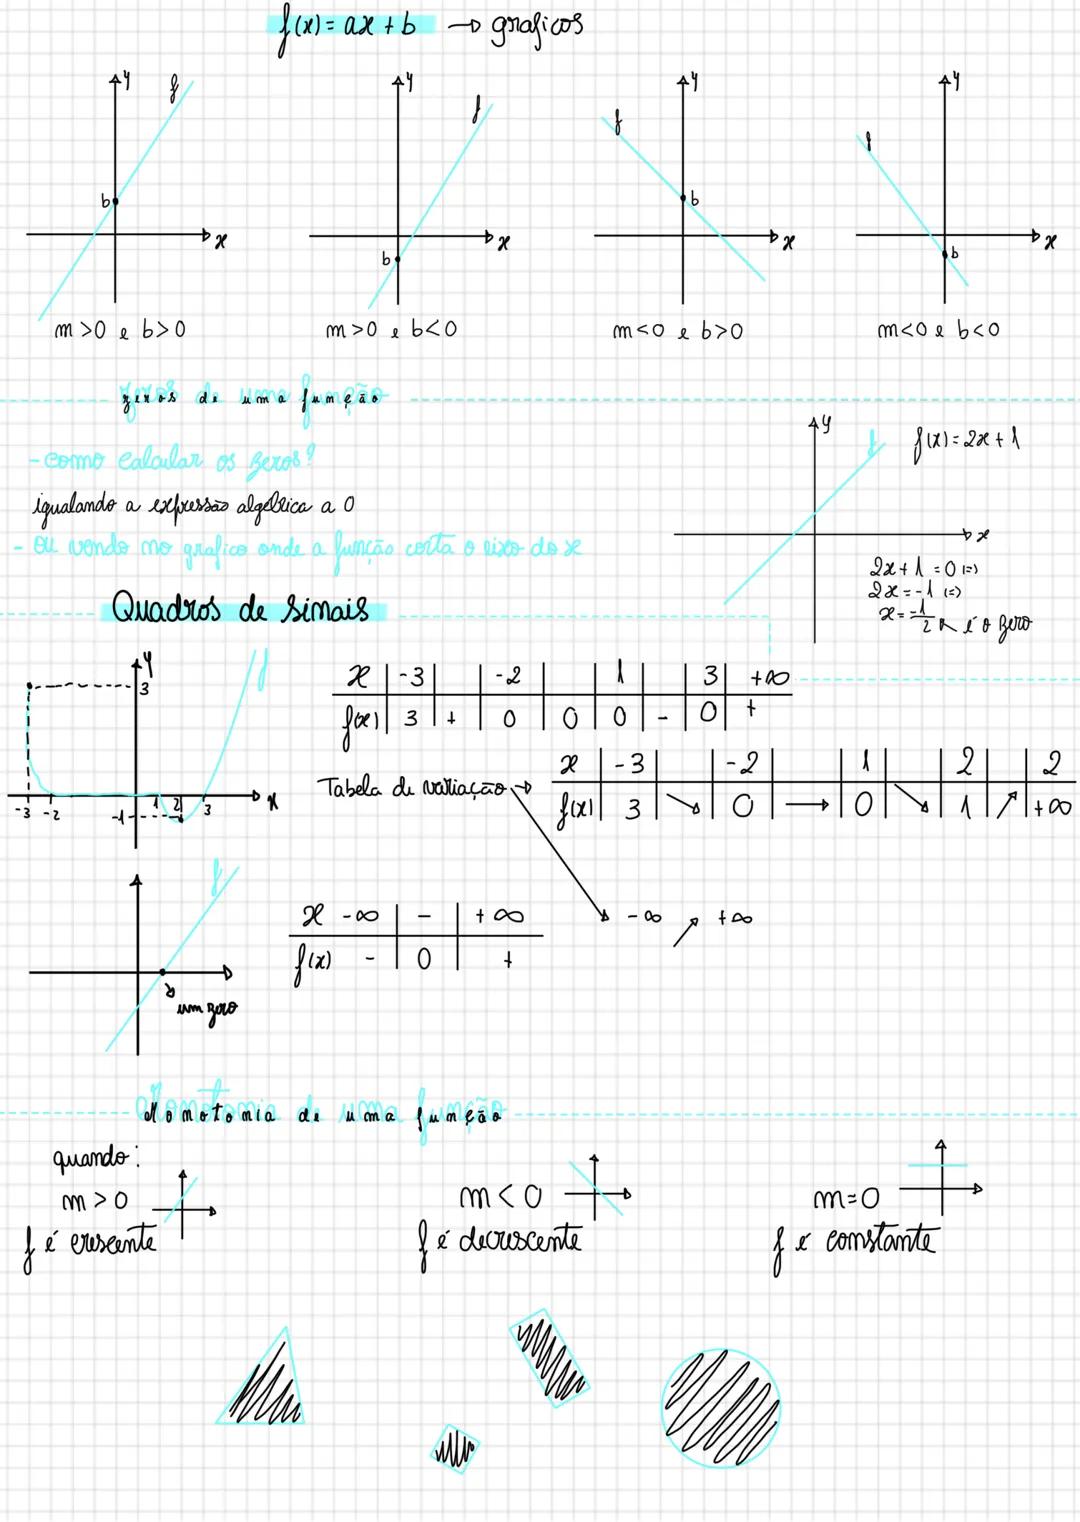 f(x) = ax + b → graficos
y f y f y f y f
b b b b
x x x x
m>0 e b>0 m>0 e b<0 m<0 e b>0 m<0 e b<0
zeros de uma função
- como calcular os zeros?
igualando a expressão algébrica a 0
- ou vendo no grafico onde a função corta o eixo do x
y f f(x) = 2x + 1
x
2x + 1 = 0 (=)
2x = -1 (=)
x = -1/2 é o zero
Quadros de sinais
y f
3
-3 -2 1 2 3 x
-1
x | -3 | | -2 | | 1 | | 3 | +∞
f(x) | 3 | + | 0 | 0 | 0 | - | 0 | +
Tabela de variação →
x | -3 | | -2 | | 1 | | 2 | | 2
f(x) | 3 | ↘ | 0 | → | 0 | ↘ | 1 | ↗ | +∞
f
um zero
x -∞ | - | +∞
f(x) - | 0 | +
-∞ ↗ +∞
Monotomia de uma função
quando:
m > 0 m < 0 m=0
f é crescente f é decrescente f é constante